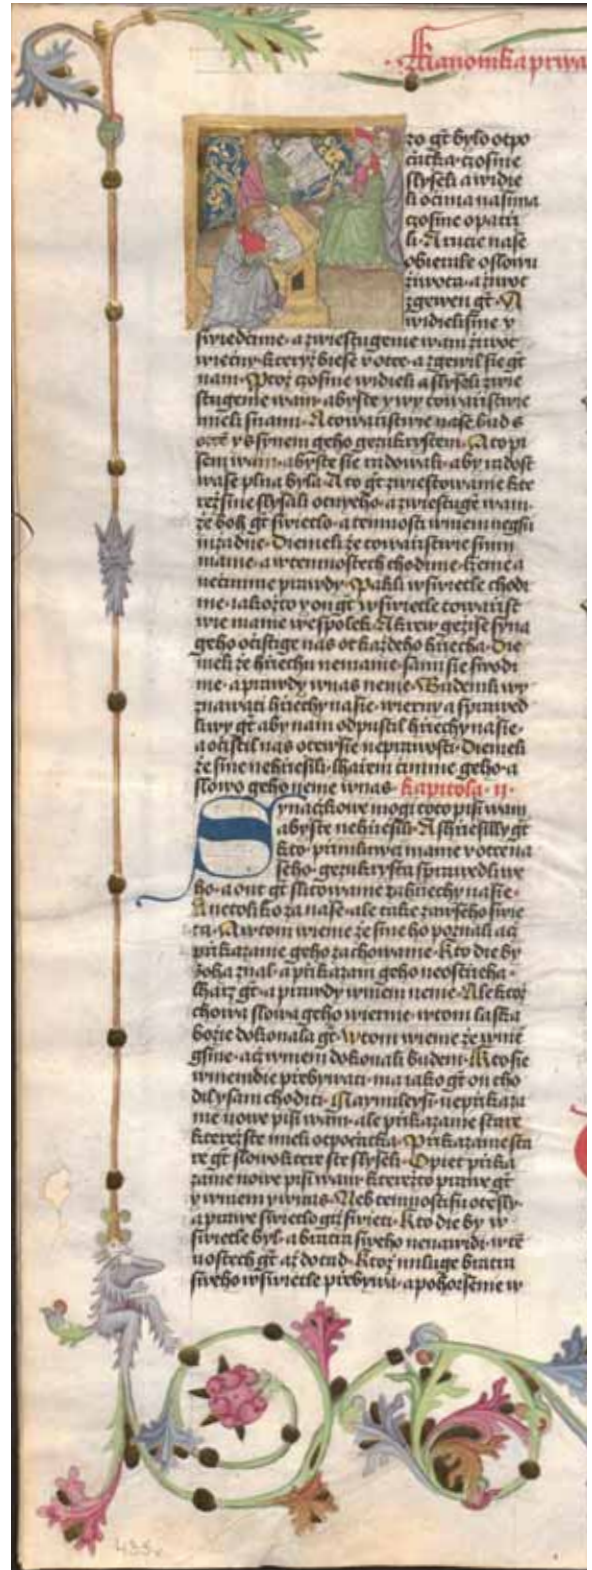 Kanonika prwa
zo gt bylo otpo
czatka czosme
slyseli a widie
li oczima nasima
czosme opatrzi
li · A rucie nase
obierale o slowu
ziwota · a ziwot
zgewen gt · A
widielisme y
swiedcime · a zwiestugeme wam ziwot
wiecny · kteryz biese v otce · a zgewil sie gt
nam · Proz czosme widieli a slyseli zwie
stugeme wam · abyste y wy towarzistwie
mieli s nami · A towarzistwie nase bud s
otcem y s synem geho gezukrystem · A to pi
sem wam · abyste sie radowali · aby radost
wase plna byla · A to gt zwiestowanie kte
rez sme slysali ot nyeho · a zwiestugem wam ·
ze boh gt swietlo · a temnosti w niem negsu
nizadne · Diemeli ze towarzistwie s nim
mame · a w temnostech chodime · lzeme a
necinime prawdy · Pakli w swietle chodi
me · iakozto y on gt w swietle towarzist
wie mame wespolek · A krew gezise syna
geho ocistige nas ot kazdeho hrziecha · Die
meli ze hrziechu nemame · sami sie swodi
me · a prawdy w nas nenie · Budemli wy
znawati hrziechy nasie · wierny a sprawed
liwy gt aby nam odpustil hrziechy nasie ·
a ocistil nas ote wsie neprawosti · Diemeli
ze sme nehrziesili · lharzem cinime geho · a
slowo geho nenie w nas · Kapitola · ii ·
Synackowe mogi toto pisi wam
abyste nehrziesili · A shrziesilly gt
kto · primluwci mame v otce na
seho · gezukrysta sprawedliwe
ho · a ont gt slitowanie za hrziechy nasie ·
A netoliko za nase · ale take za wseho swie
ta · A w tom wieme ze sme ho poznali acz
przikazanie geho zachowame · Kto die by
boha znal · a przikazani geho neostrzieha ·
lharz gt · a prawdy w niem nenie · Ale ktoz
chowa slowa geho wiernie · w tom laska
bozie dokonala gt · W tom wieme ze w niem
gsme · acz w niem dokonali budem · Kto sie
w niem die przebywati · ma iako gt on cho
dil y sam choditi · Naymileysi · ne przikaza
nie nowe pisi wam · ale przikazanie stare
kterezste mieli ot pocatka · Przikazanie sta
re gt slowo ktere ste slyseli · Opiet przika
zanie nowe pisi wam · kterezto prawe gt
y w niem y w nas · Neb temnosti su otesly ·
a prawe swietlo giz swieti · Kto die by w
swietle byl · a bratra sweho nenawidi · w tem
nostech gt az dotud · Ktoz miluge bratra
sweho w swietle przebywa · a pohorsenie w